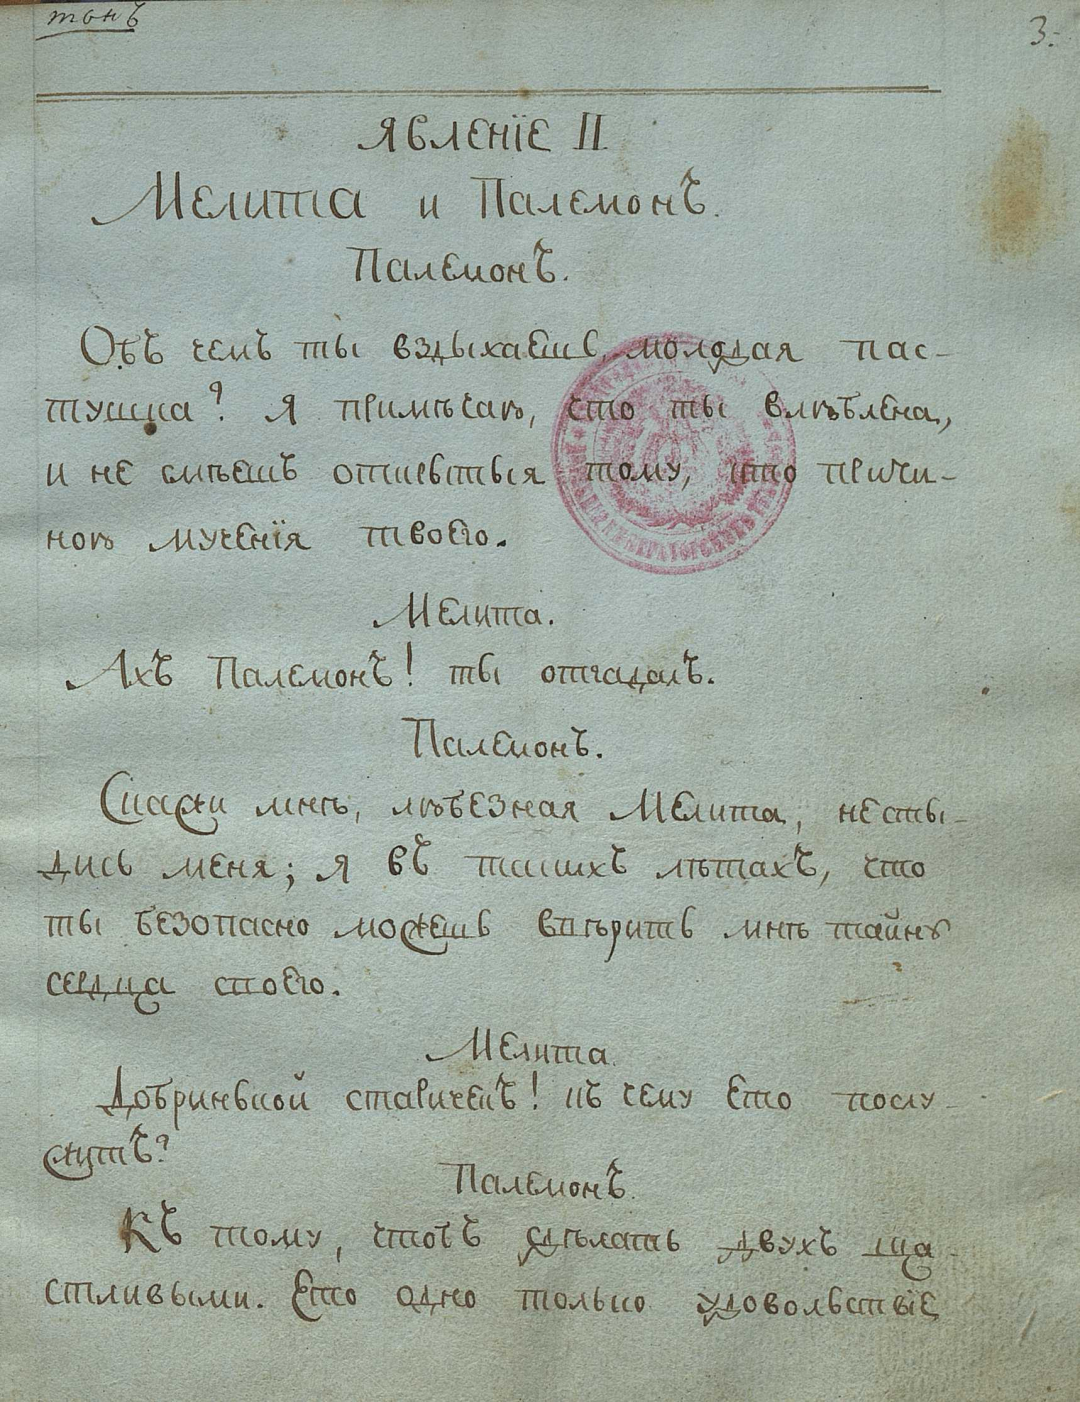 тонъ
3.
Явленїе II
Мелита и Палемонъ.
Палемонъ.
Объ чемъ ты вздыхаешь, молодая пас-
тушка? Я примѣчаю, что ты влюблена,
и не смѣешь открыться тому, кто причи-
ною мученїя твоего.
Мелита.
Ахъ Палемонъ! ты отгадалъ.
Палемонъ.
Скажи мнѣ, любезная Мелита, несты-
дись меня; я въ такихъ лѣтахъ, что
ты безопасно можешь ввѣрить мнѣ тайну
сердца своего.
Мелита.
Добринькой старичекъ! къ чему ето послу-
житъ?
Палемонъ.
Къ тому, чтобъ сдѣлать двухъ ща-
стливыми. Ето одно только удовольствїе